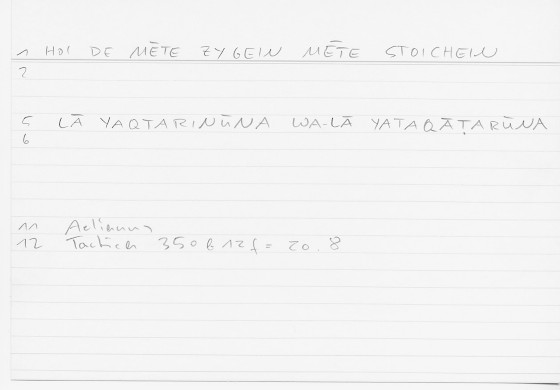 1 HOI DE MĒTE ZYGEIN MĒTE STOICHEIN
2
5 LĀ YAQTARINŪNA WA-LĀ YATAQĀṬARŪNA
6
11 Aelianus
12 Tactica 350 B 12 f = 20.8